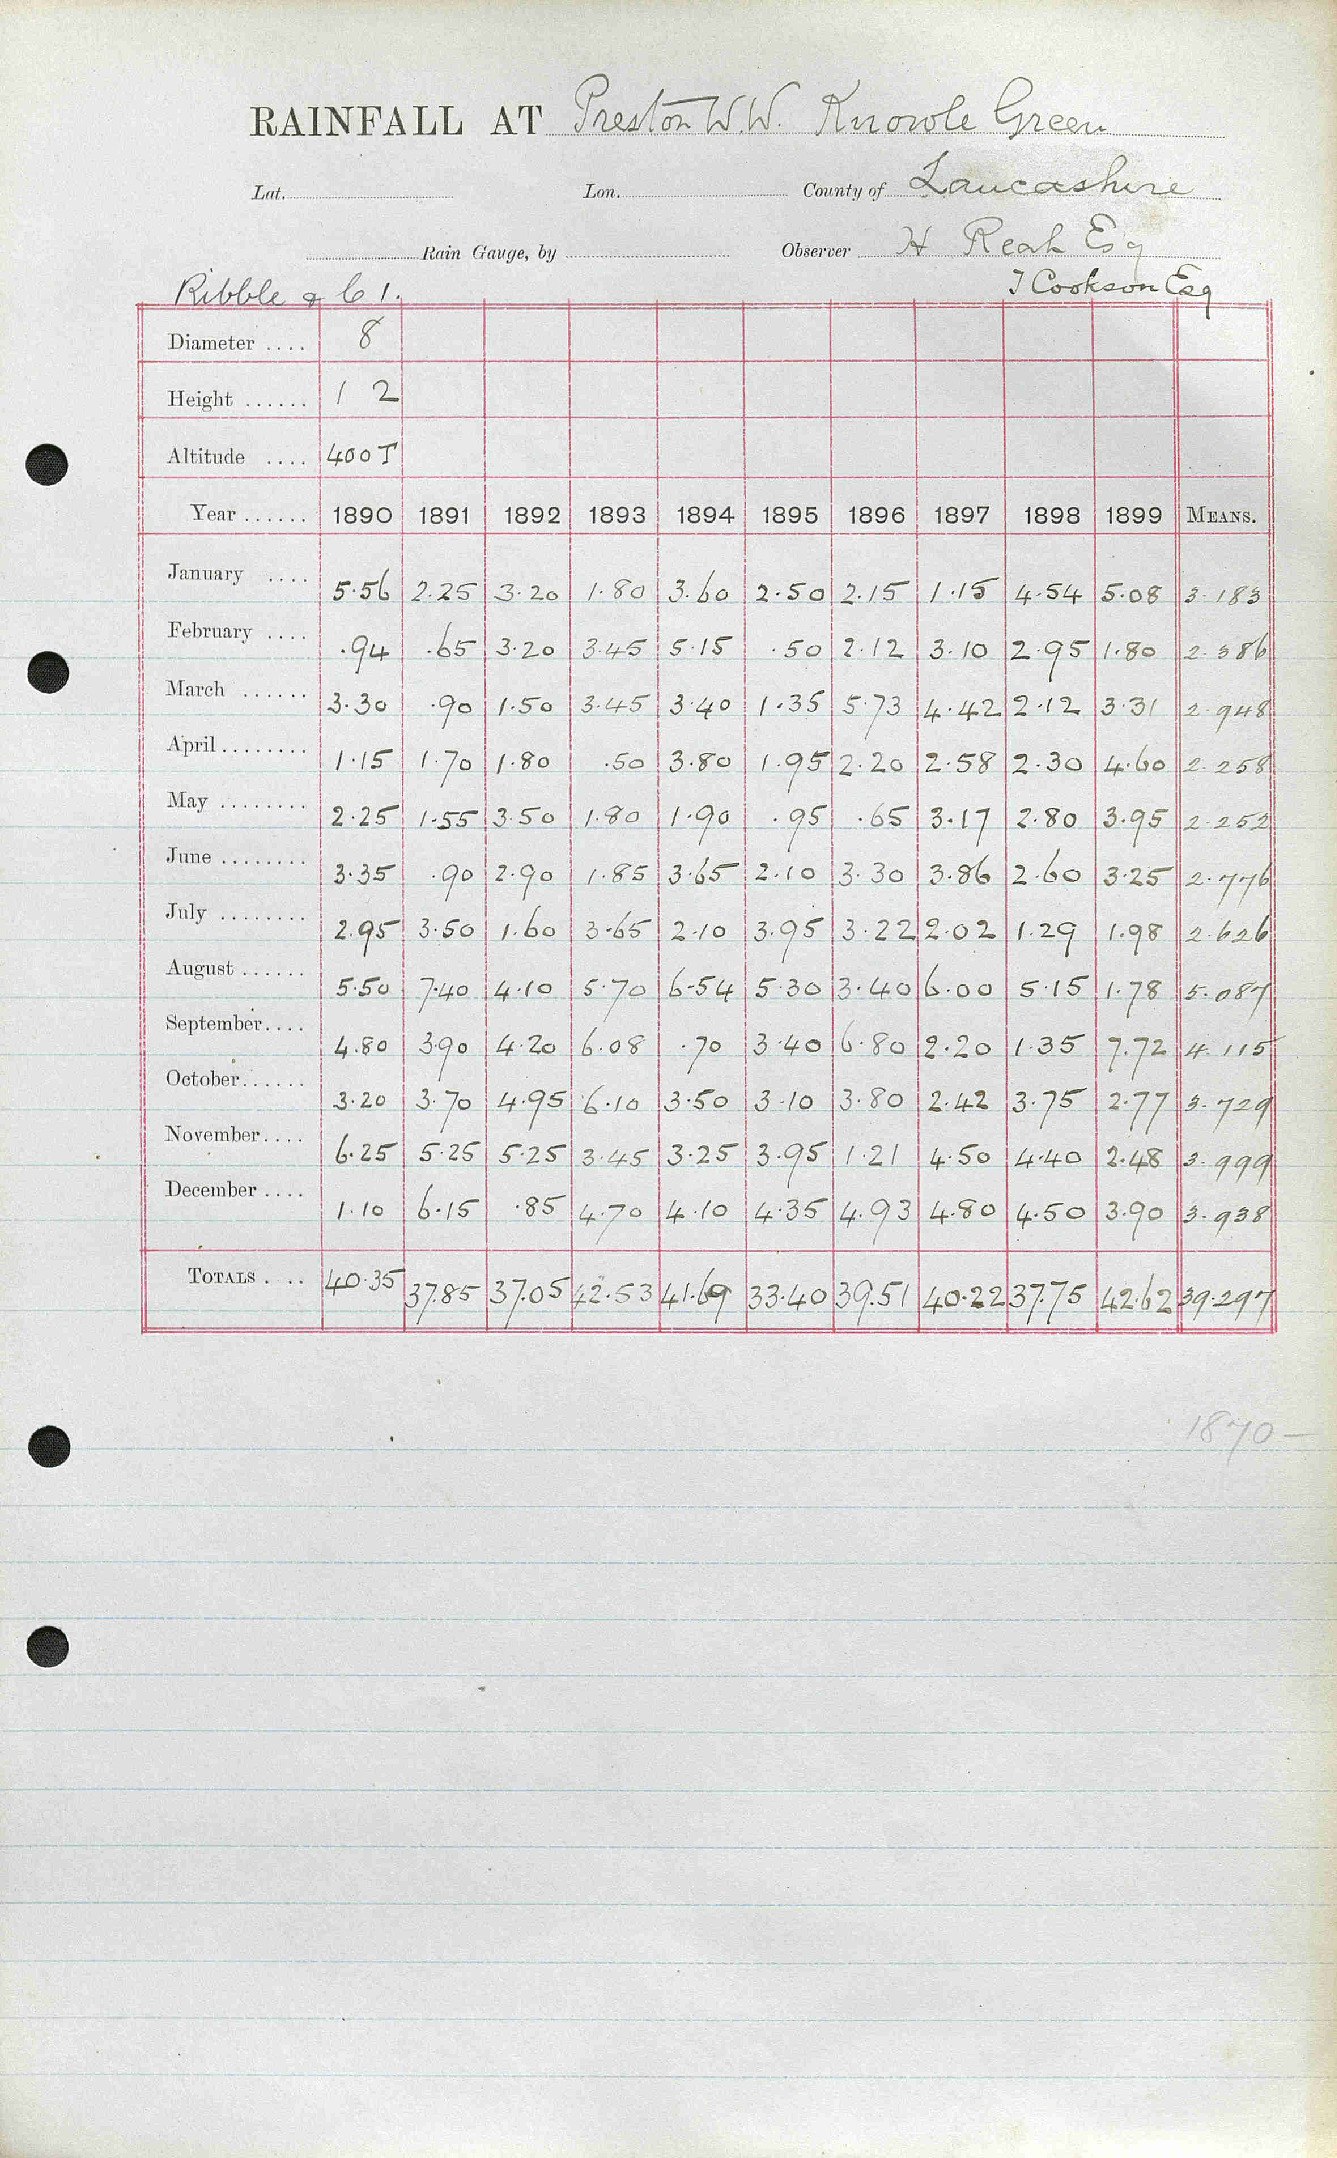 RAINFALL AT Preston W.W. Knowle Green
Lat. Lon. County of Lancashire
Rain Gauge, by Observer H Reah Esq
Ribble & C 1. T Cookson Esq
Diameter .... 8
Height ...... 1 2
Altitude .... 400 T
Year ...... 1890 1891 1892 1893 1894 1895 1896 1897 1898 1899 MEANS.
January .... 5.56 2.25 3.20 1.80 3.60 2.50 2.15 1.15 4.54 5.08 3.183
February .... .94 .65 3.20 3.45 5.15 .50 2.12 3.10 2.95 1.80 2.386
March ...... 3.30 .90 1.50 3.45 3.40 1.35 5.73 4.42 2.12 3.31 2.948
April ........ 1.15 1.70 1.80 .50 3.80 1.95 2.20 2.58 2.30 4.60 2.258
May ........ 2.25 1.55 3.50 1.80 1.90 .95 .65 3.17 2.80 3.95 2.252
June ........ 3.35 .90 2.90 1.85 3.65 2.10 3.30 3.86 2.60 3.25 2.776
July ........ 2.95 3.50 1.60 3.65 2.10 3.95 3.22 2.02 1.29 1.98 2.626
August ...... 5.50 7.40 4.10 5.70 6.54 5.30 3.40 6.00 5.15 1.78 5.087
September .... 4.80 3.90 4.20 6.08 .70 3.40 6.80 2.20 1.35 7.72 4.115
October ...... 3.20 3.70 4.95 6.10 3.50 3.10 3.80 2.42 3.75 2.77 3.729
November .... 6.25 5.25 5.25 3.45 3.25 3.95 1.21 4.50 4.40 2.48 3.999
December .... 1.10 6.15 .85 4.70 4.10 4.35 4.93 4.80 4.50 3.90 3.938
TOTALS . .. 40.35 37.85 37.05 42.53 41.69 33.40 39.51 40.22 37.75 42.62 39.297
1870 —